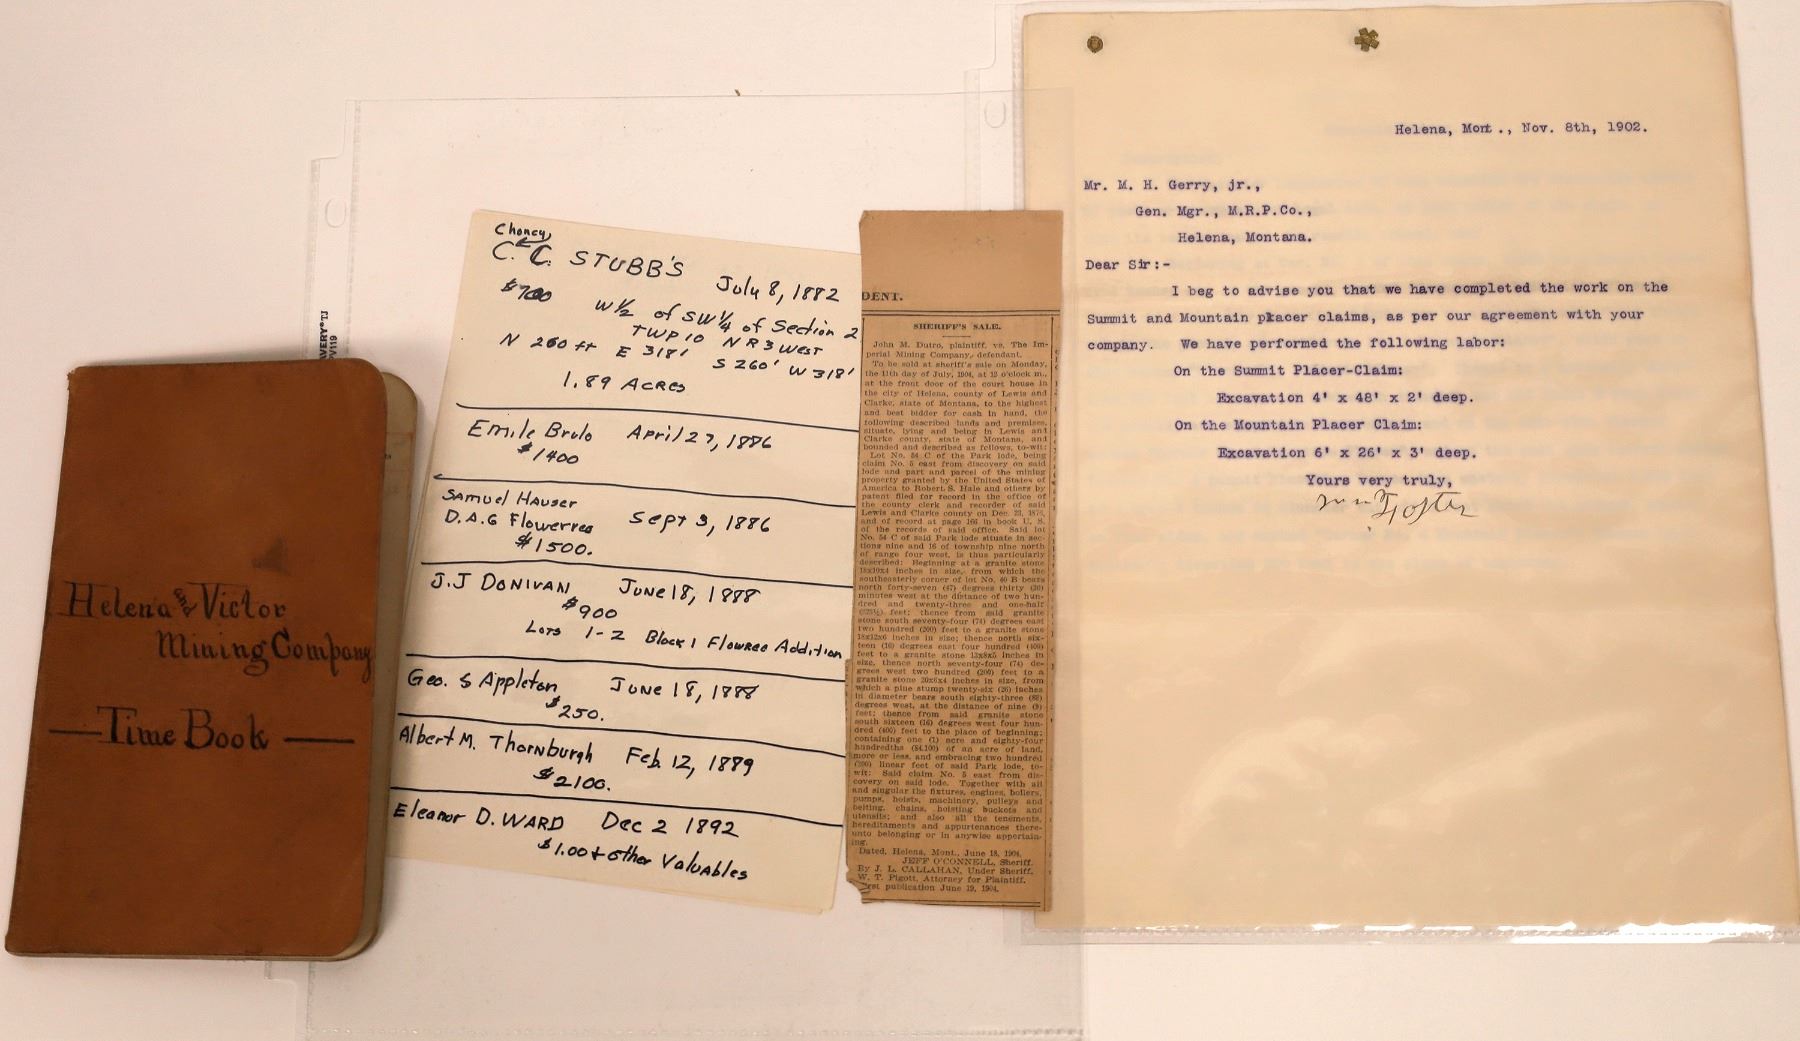 Helena and Victor
Mining Company
Time Book
AVERY® TJ
PV119
Choncy
C. C. STUBB'S
July 8, 1882
$700
W 1/2 of SW 1/4 of Section 2
TWP 10 N R 3 West
N 260 ft E 318' S 260' W 318'
1.89 ACRES
Emile Brulo April 27, 1886
$1400
Samuel Hauser
D.A.G Flowerree Sept 3, 1886
$1500.
J.J DONIVAN June 18, 1888
$900
Lots 1-2 Block 1 Flowree Addition
Geo. S Appleton June 18, 1888
$250.
Albert M. Thornburgh Feb. 12, 1889
$2100.
Eleanor D. WARD Dec 2 1892
$1.00 + other Valuables
DENT.
SHERIFF'S SALE.
John M. Dutro, plaintiff, vs. The Im-
perial Mining Company, defendant.
To be sold at sheriff's sale on Monday,
the 11th day of July, 1904, at 12 o'clock m.,
at the front door of the court house in
the city of Helena, county of Lewis and
Clarke, state of Montana, to the highest
and best bidder for cash in hand, the
following described lands and premises,
situate, lying and being in Lewis and
Clarke county, state of Montana, and
bounded and described as follows, to-wit:
Lot No. 54 C of the Park lode, being
claim No. 5 east from discovery on said
lode and part and parcel of the mining
property granted by the United States of
America to Robert S. Hale and others by
patent filed for record in the office of
the county clerk and recorder of said
Lewis and Clarke county on Dec. 23,
and of record at page 166 in book U. S.
of the records of said office. Said lot
No. 54 C of said Park lode situate in sec-
tions nine and 16 of township nine north
of range four west, is thus particularly
described: Beginning at a granite stone
18x10x4 inches in size, from which the
southeasterly corner of lot No. 40 B bears
north forty-seven (47) degrees thirty (30)
minutes west at the distance of two hun-
dred and twenty-three and one-half
(223½) feet; thence from said granite
stone south seventy-four (74) degrees east
two hundred (200) feet to a granite stone
18x12x6 inches in size; thence north six-
teen (16) degrees east four hundred (400)
feet to a granite stone 13x8x5 inches in
size, thence north seventy-four (74) de-
grees west two hundred (200) feet to a
granite stone 20x6x4 inches in size, from
which a pine stump twenty-six (26) inches
in diameter bears south eighty-three (83)
degrees west, at the distance of nine (9)
feet; thence from said granite stone
south sixteen (16) degrees west four hun-
dred (400) feet to the place of beginning;
containing one (1) acre and eighty-four
hundredths (84.100) of an acre of land,
more or less, and embracing two hundred
(200) linear feet of said Park lode, to-
wit: Said claim No. 5 east from dis-
covery on said lode. Together with all
and singular the fixtures, engines, boilers,
pumps, hoists, machinery, pulleys and
belting, chains, hoisting buckets and
utensils; and also all the tenements,
hereditaments and appurtenances there-
unto belonging or in anywise appertain-
ing.
Dated, Helena, Mont., June 18, 1904.
JEFF O'CONNELL, Sheriff.
By J. L. CALLAHAN, Under Sheriff.
W. T. Pigott, Attorney for Plaintiff.
First publication June 19, 1904.
Helena, Mont., Nov. 8th, 1902.
Mr. M. H. Gerry, jr.,
Gen. Mgr., M.R.P.Co.,
Helena, Montana.
Dear Sir:-
I beg to advise you that we have completed the work on the
Summit and Mountain placer claims, as per our agreement with your
company. We have performed the following labor:
On the Summit Placer-Claim:
Excavation 4' x 48' x 2' deep.
On the Mountain Placer Claim:
Excavation 6' x 26' x 3' deep.
Yours very truly,
Wm Foster